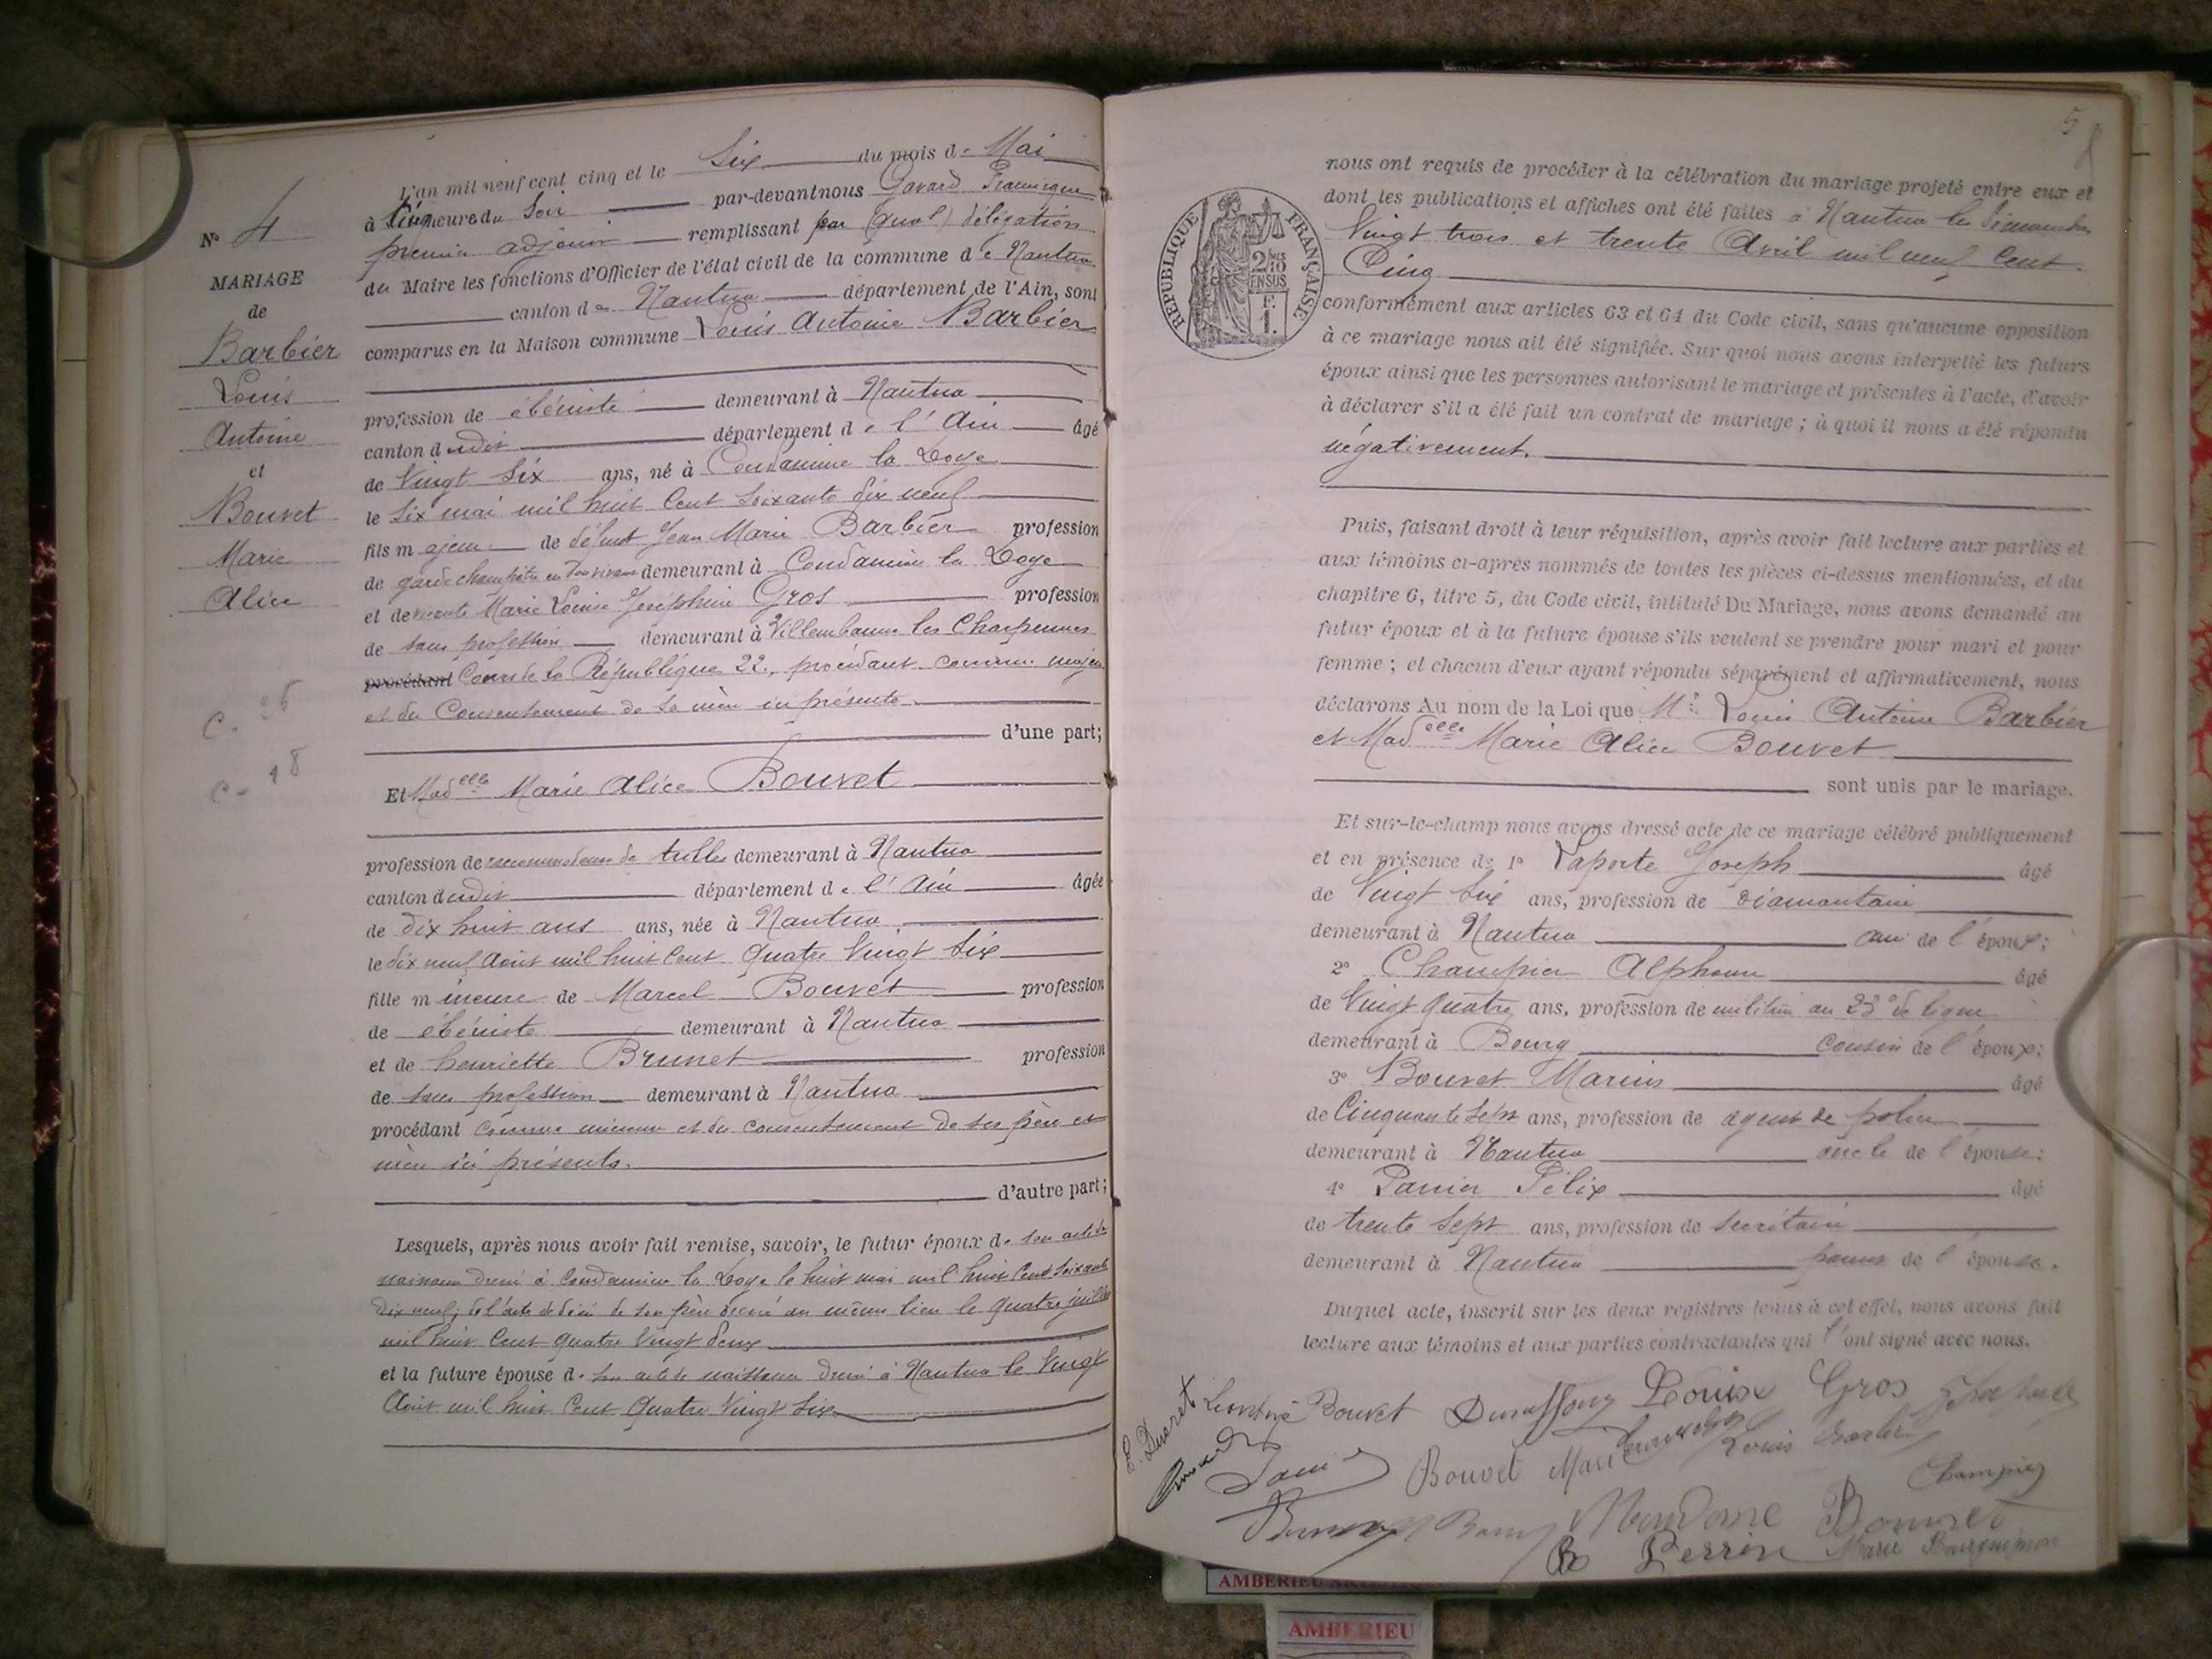 L'an mil neuf cent cinq et le Six du mois de Mai
à Cinq heure du Soir par-devant nous Govard
premier adjoint remplissant par (qual) délégation
du Maire les fonctions d'Officier de l'état civil de la commune de Nantua
canton de Nantua département de l'Ain, sont
comparus en la Maison commune Louis Antoine Barbier
profession de ébéniste demeurant à Nantua
canton dudit département de l'Ain âgé
de Vingt Six ans, né à Condamine la Doye
le Six mai mil huit Cent Soixante dix neuf
fils majeur de défunt Jean Marie Barbier profession
de garde champêtre en son vivant demeurant à Condamine la Doye
et de veuve Marie Louise Joséphine Gros profession
de sans profession demeurant à Villeurbanne les Charpennes
procédant Cours de la République 22, procédant comme majeur
et du Consentement de sa mère ici présente
d'une part;
Et Madelle Marie Alice Bouvet
profession de raccommodeuse de tulles demeurant à Nantua
canton dudit département de l'Ain âgée
de dix huit ans ans, née à Nantua
le dix neuf Août mil huit Cent Quatre Vingt Six
fille mineure de Marcel Bouvet profession
de ébéniste demeurant à Nantua
et de henriette Brunet profession
de sans profession demeurant à Nantua
procédant comme mineure et du consentement de ses père et
mère ici présents.
d'autre part;
Lesquels, après nous avoir fait remise, savoir, le futur époux de son acte de
naissance dressé à Condamine la Doye le huit mai mil huit Cent Soixante
Dix neuf; de l'acte de décès de son père dressé au même lieu le quatre juillet
mil huit Cent Quatre Vingt deux
et la future épouse de son acte de naissance dressé à Nantua le Vingt
Août mil huit Cent Quatre Vingt Six
N° 4
MARIAGE
de
Barbier
Louis
Antoine
et
Bouvet
Marie
Alice
C. 26
C. 18
5
8
RÉPUBLIQUE FRANÇAISE
2/10 EN SUS
F.
1.
nous ont requis de procéder à la célébration du mariage projeté entre eux et
dont les publications et affiches ont été faites à Nantua les Dimanches
Vingt trois et trente Avril mil neuf Cent
Cinq
conformément aux articles 63 et 64 du Code civil, sans qu'aucune opposition
à ce mariage nous ait été signifiée. Sur quoi nous avons interpellé les futurs
époux ainsi que les personnes autorisant le mariage et présentes à l'acte, d'avoir
à déclarer s'il a été fait un contrat de mariage; à quoi il nous a été répondu
négativement.
Puis, faisant droit à leur réquisition, après avoir fait lecture aux parties et
aux témoins ci-après nommés de toutes les pièces ci-dessus mentionnées, et du
chapitre 6, titre 5, du Code civil, intitulé Du Mariage, nous avons demandé au
futur époux et à la future épouse s'ils veulent se prendre pour mari et pour
femme; et chacun d'eux ayant répondu séparément et affirmativement, nous
déclarons Au nom de la Loi que Mr Louis Antoine Barbier
et Madelle Marie Alice Bouvet
sont unis par le mariage.
Et sur-le-champ nous avons dressé acte de ce mariage célébré publiquement
et en présence de 1° Laporte Joseph âgé
de Vingt Six ans, profession de diamantaire
demeurant à Nantua ami de l'époux;
2° Champier Alphonse âgé
de Vingt Quatre ans, profession de militaire au 23e de ligne
demeurant à Bourg Cousin de l'époux;
3° Bouvet Marius âgé
de Cinquante Sept ans, profession de agent de police
demeurant à Nantua oncle de l'épouse;
4° Panier Félix âgé
de trente Sept ans, profession de Secrétaire
demeurant à Nantua parent de l'épouse.
Duquel acte, inscrit sur les deux registres tenus à cet effet, nous avons fait
lecture aux témoins et aux parties contractantes qui l'ont signé avec nous.
E. Ducret Léontine Bouvet Louise Gros
Bouvet Mari Louis Barbier
Champier
Madame Bouvet
Perrin Marie
AMBERIEU
AMBERIEU